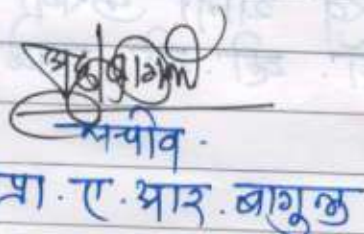 सचीव.
प्रा. ए. आर. बागुल